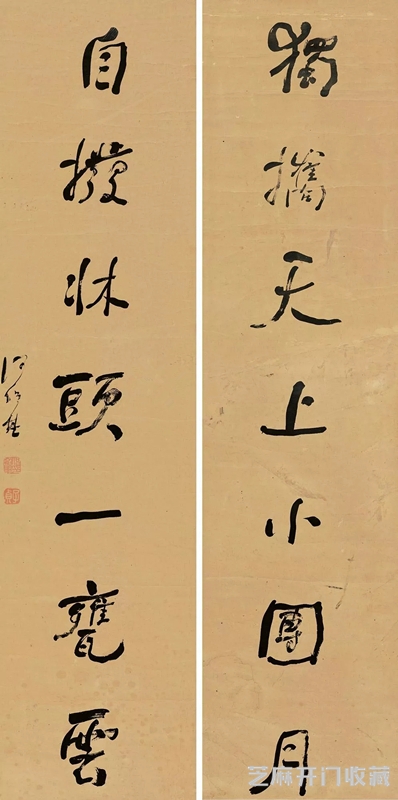 獨攜天上小團月
自撥牀頭一甕雲
何紹基
芝麻开门收藏